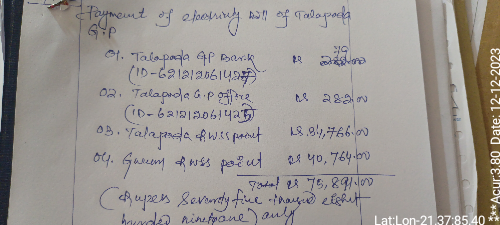 Payment of electricity Bill of Talapada
G.P
01. Talapada GP Bank
(ID-621212061427)
02. Talapada G.P office Rs 282.00
(ID-621212061425)
03. Talapada RWSS point
04. RWSS point Rs 40,764.00
Total Rs 75,891.00
(Rupees Seventy five thousand eight
hundred ninetyone) only
Lat:Lon-21.37:85.40
Date: 12-12-2023